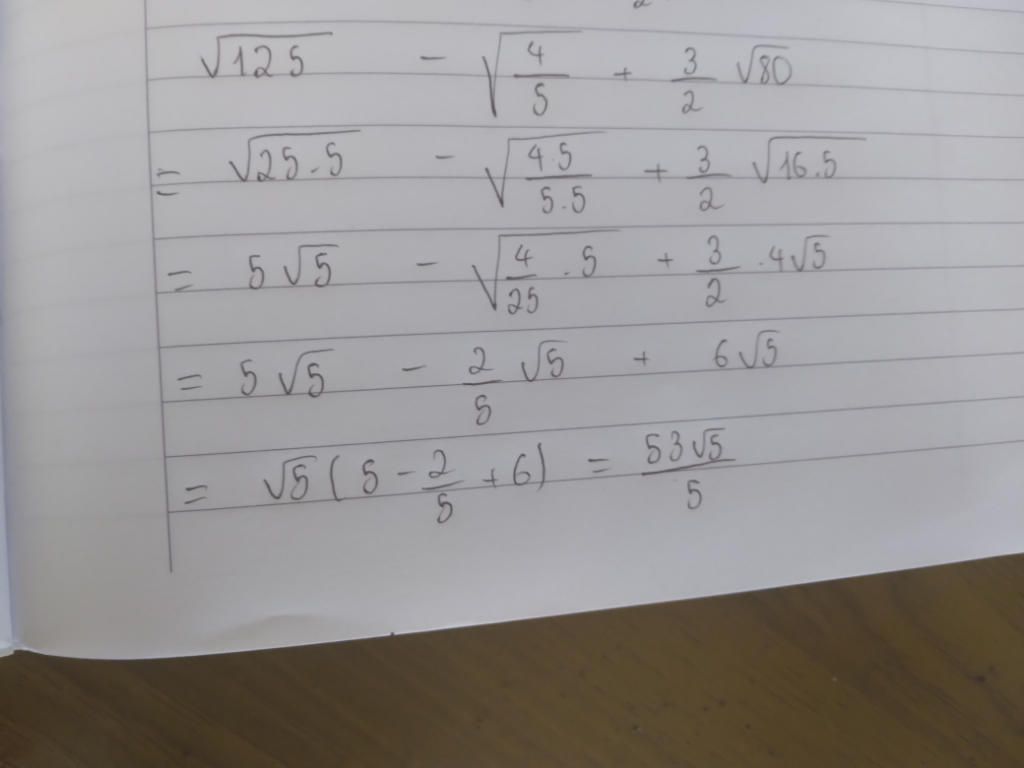 √125 - √(4/5) + 3/2 √80
= √(25.5) - √(4.5/5.5) + 3/2 √(16.5)
= 5√5 - √(4/25 . 5) + 3/2 . 4√5
= 5√5 - 2/5 √5 + 6√5
= √5 (5 - 2/5 + 6) = 53√5/5